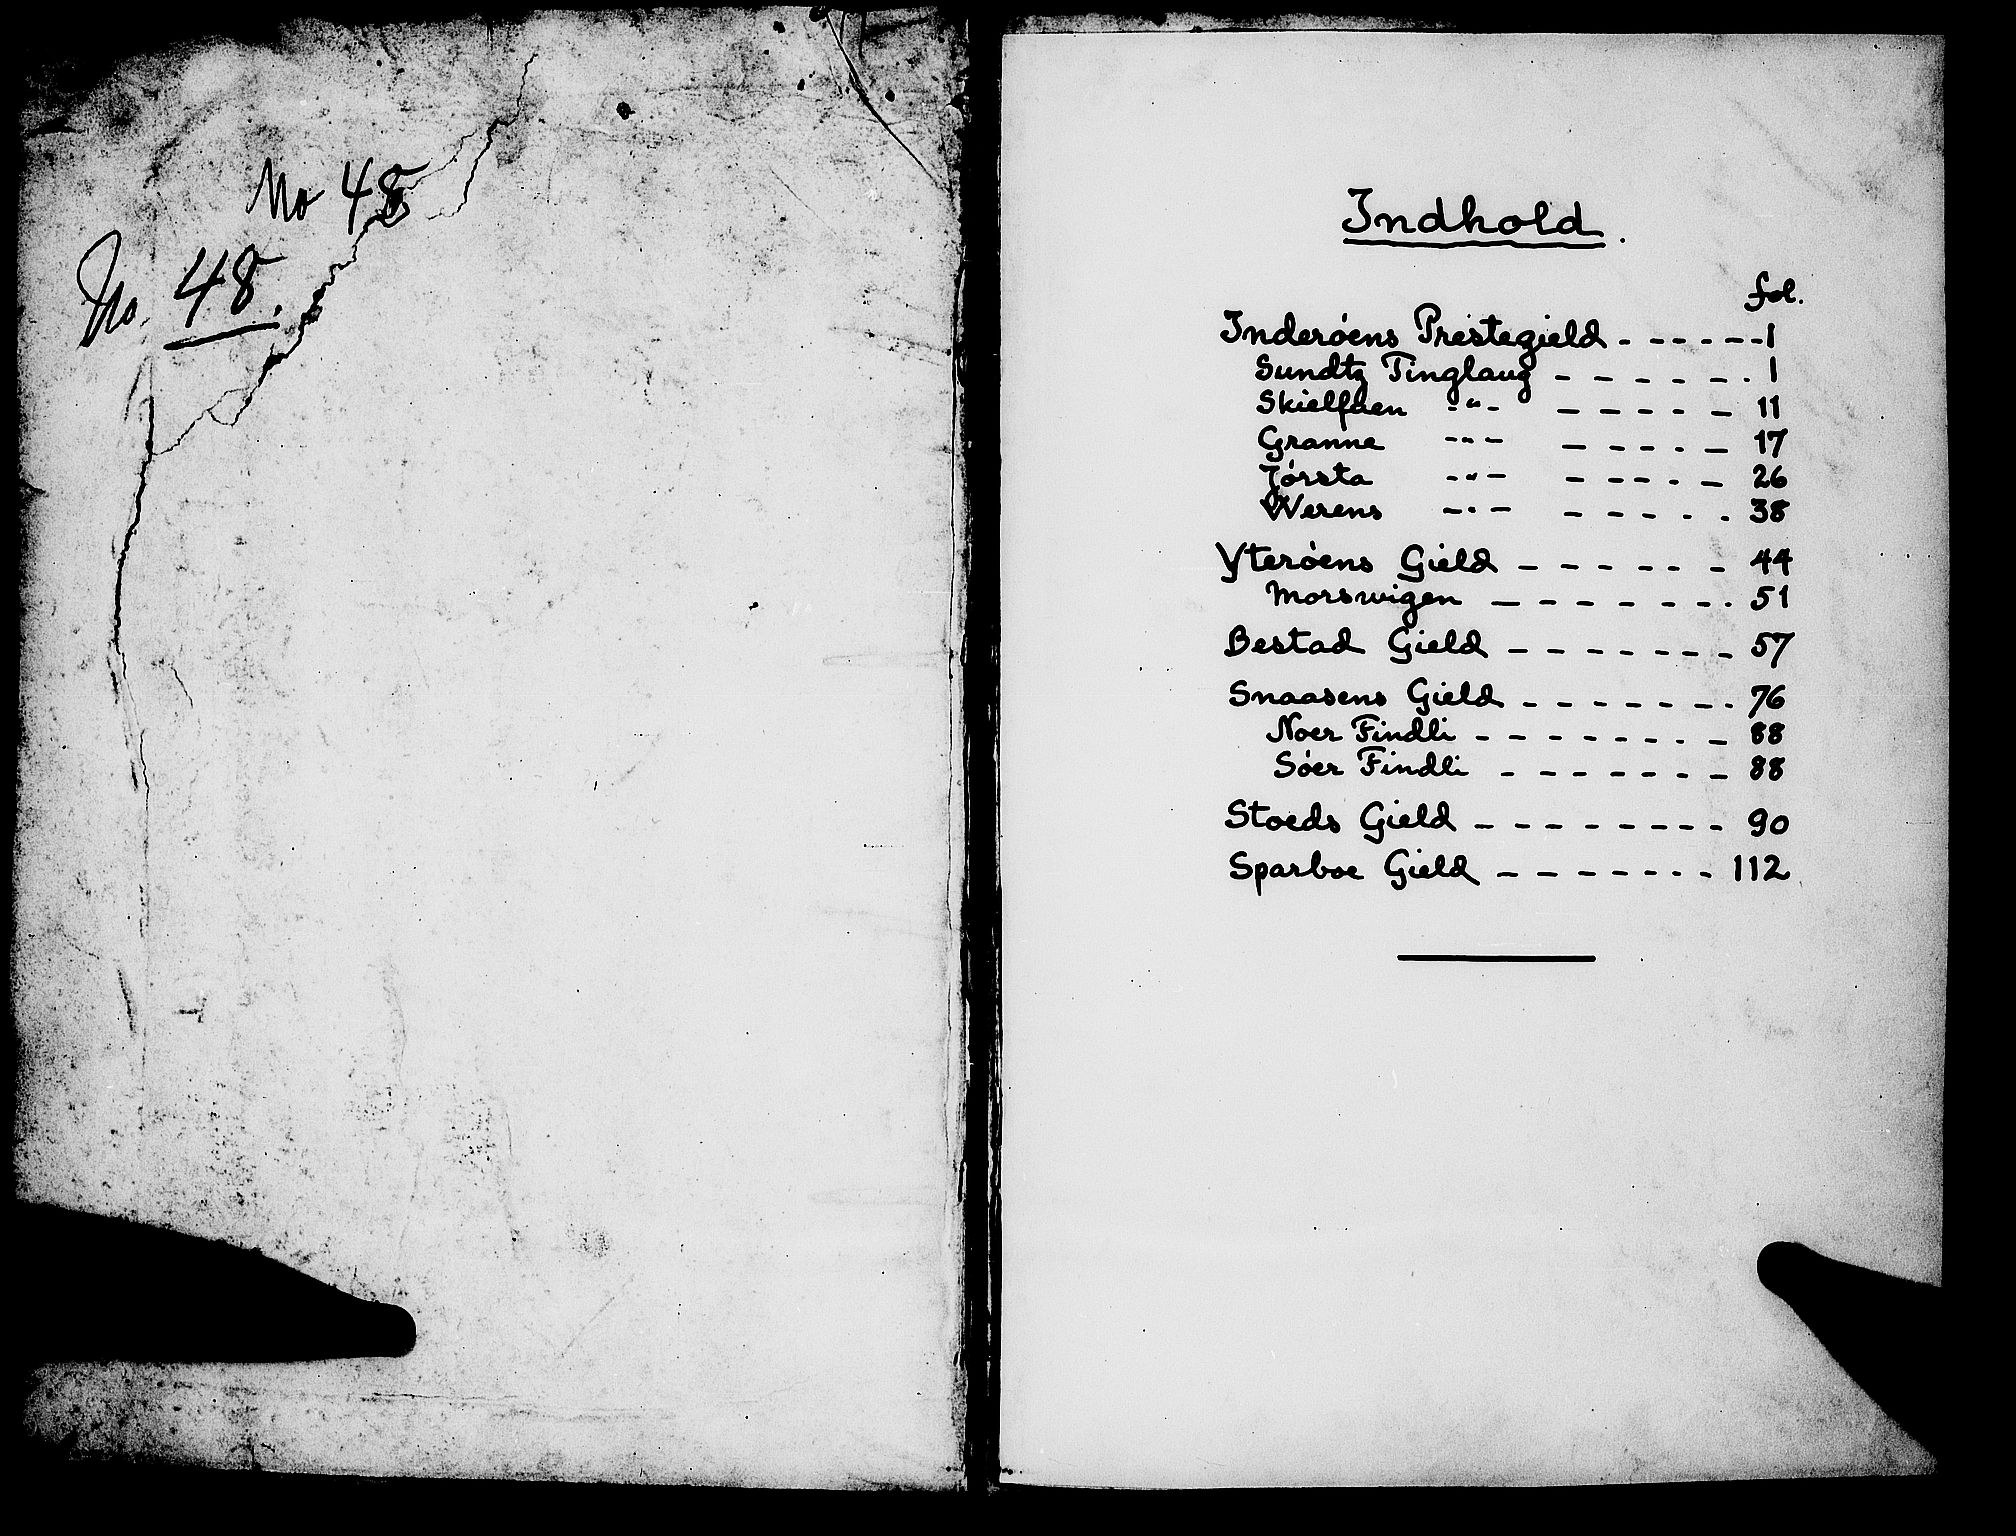 No 48
No. 48.
Indhold.
fol.
Inderóens Prestegield - - - - - - 1
Sundtz Tinglaug - - - - - - . 1
Skielfaen -"- - - - - - 11
Granne -"- - - - - - 17
Jórsta -"- - - - - - - 26
Werens -"- - - - - - . 38
Yteróens Gield - - - - - - - 44
Morswigen - - - - - - - . 51
Bestad Gield - - - - - - - - 57
Snaasens Gield - - - - - - - . 76
Noer Findli - - - - - - - - - 88
Sóer Findli - - - - - - - - 88
Stoeds Gield - - - - - - - - - 90
Sparboe Gield - - - - - - - - 112